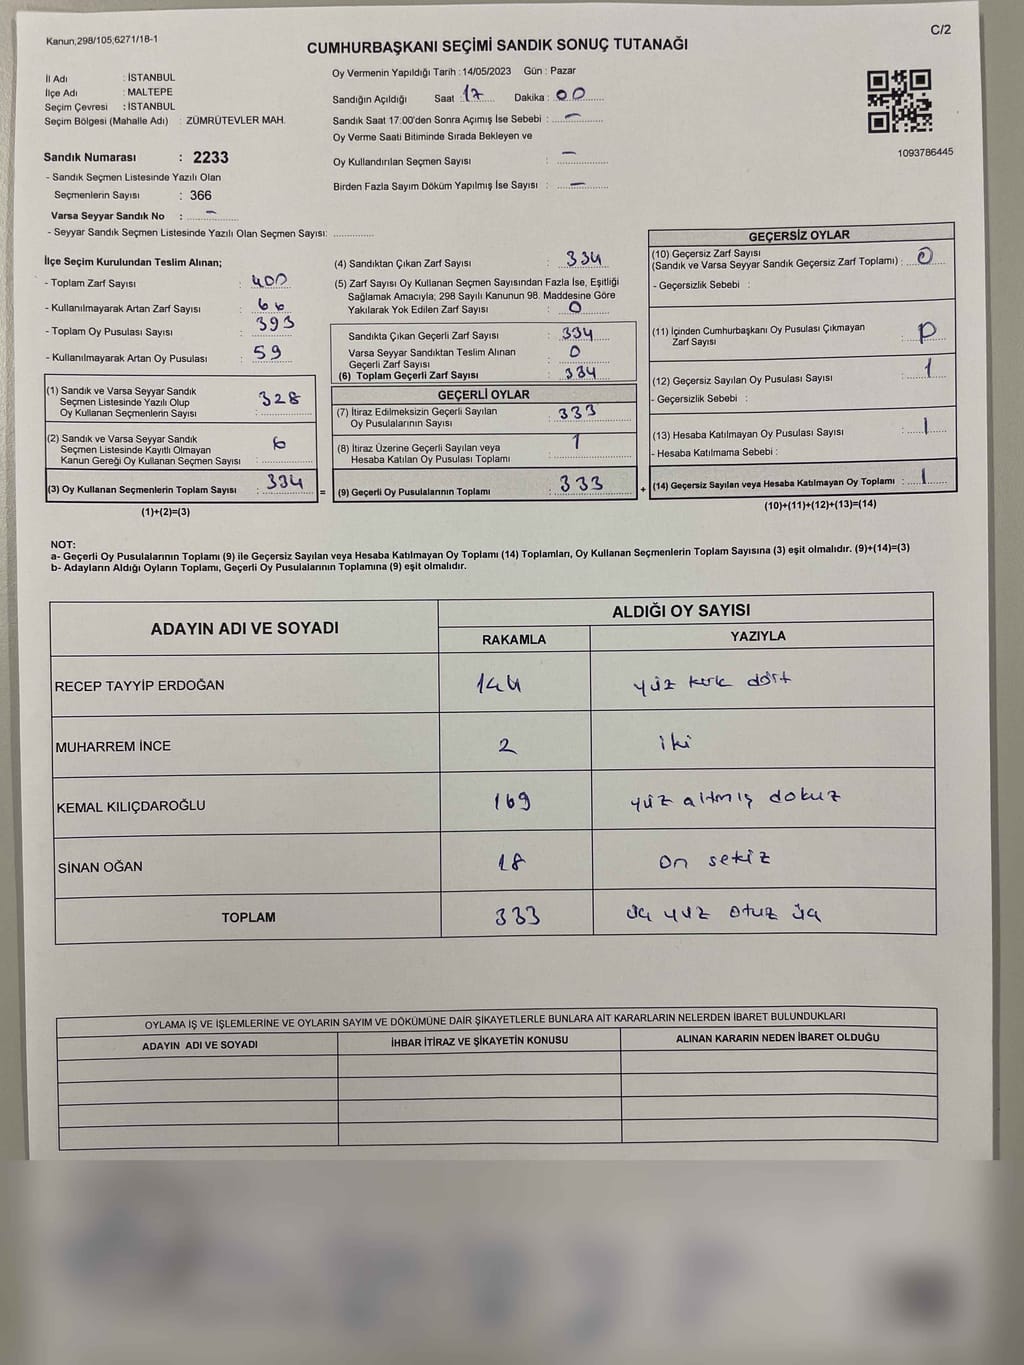 Kanun,298/105,6271/18-1
C/2
CUMHURBAŞKANI SEÇİMİ SANDIK SONUÇ TUTANAĞI
İl Adı : İSTANBUL
İlçe Adı : MALTEPE
Seçim Çevresi : İSTANBUL
Seçim Bölgesi (Mahalle Adı) : ZÜMRÜTEVLER MAH.
Oy Vermenin Yapıldığı Tarih : 14/05/2023 Gün : Pazar
Sandığın Açıldığı Saat : 17 Dakika : 00
Sandık Saat 17:00'den Sonra Açımış İse Sebebi : —
Oy Verme Saati Bitiminde Sırada Bekleyen ve
Oy Kullandırılan Seçmen Sayısı : —
Birden Fazla Sayım Döküm Yapılmış İse Sayısı : —
1093786445
Sandık Numarası : 2233
- Sandık Seçmen Listesinde Yazılı Olan
Seçmenlerin Sayısı : 366
Varsa Seyyar Sandık No : -
- Seyyar Sandık Seçmen Listesinde Yazılı Olan Seçmen Sayısı:
İlçe Seçim Kurulundan Teslim Alınan;
- Toplam Zarf Sayısı : 400
- Kullanılmayarak Artan Zarf Sayısı : 66
- Toplam Oy Pusulası Sayısı : 393
- Kullanılmayarak Artan Oy Pusulası : 59
(1) Sandık ve Varsa Seyyar Sandık
Seçmen Listesinde Yazılı Olup
Oy Kullanan Seçmenlerin Sayısı : 328
(2) Sandık ve Varsa Seyyar Sandık
Seçmen Listesinde Kayıtlı Olmayan
Kanun Gereği Oy Kullanan Seçmen Sayısı : 6
(3) Oy Kullanan Seçmenlerin Toplam Sayısı : 334 =
(1)+(2)=(3)
(4) Sandıktan Çıkan Zarf Sayısı : 334
(5) Zarf Sayısı Oy Kullanan Seçmen Sayısından Fazla İse, Eşitliği
Sağlamak Amacıyla; 298 Sayılı Kanunun 98. Maddesine Göre
Yakılarak Yok Edilen Zarf Sayısı : 0
Sandıkta Çıkan Geçerli Zarf Sayısı : 334
Varsa Seyyar Sandıktan Teslim Alınan
Geçerli Zarf Sayısı : 0
(6) Toplam Geçerli Zarf Sayısı : 334
GEÇERLİ OYLAR
(7) İtiraz Edilmeksizin Geçerli Sayılan
Oy Pusulalarının Sayısı : 333
(8) İtiraz Üzerine Geçerli Sayılan veya
Hesaba Katılan Oy Pusulası Toplamı : 1
(9) Geçerli Oy Pusulalarının Toplamı : 333 +
GEÇERSİZ OYLAR
(10) Geçersiz Zarf Sayısı
(Sandık ve Varsa Seyyar Sandık Geçersiz Zarf Toplamı) : 0
- Geçersizlik Sebebi :
(11) İçinden Cumhurbaşkanı Oy Pusulası Çıkmayan
Zarf Sayısı :
(12) Geçersiz Sayılan Oy Pusulası Sayısı : 1
- Geçersizlik Sebebi :
(13) Hesaba Katılmayan Oy Pusulası Sayısı : 1
- Hesaba Katılmama Sebebi :
(14) Geçersiz Sayılan veya Hesaba Katılmayan Oy Toplamı : 1
(10)+(11)+(12)+(13)=(14)
NOT:
a- Geçerli Oy Pusulalarının Toplamı (9) ile Geçersiz Sayılan veya Hesaba Katılmayan Oy Toplamı (14) Toplamları, Oy Kullanan Seçmenlerin Toplam Sayısına (3) eşit olmalıdır. (9)+(14)=(3)
b- Adayların Aldığı Oyların Toplamı, Geçerli Oy Pusulalarının Toplamına (9) eşit olmalıdır.
ADAYIN ADI VE SOYADI
ALDIĞI OY SAYISI
RAKAMLA YAZIYLA
RECEP TAYYİP ERDOĞAN 144 yüz kırk dört
MUHARREM İNCE 2 iki
KEMAL KILIÇDAROĞLU 169 yüz altmış dokuz
SİNAN OĞAN 18 on sekiz
TOPLAM 333 üç yüz otuz üç
OYLAMA İŞ VE İŞLEMLERİNE VE OYLARIN SAYIM VE DÖKÜMÜNE DAİR ŞİKAYETLERLE BUNLARA AİT KARARLARIN NELERDEN İBARET BULUNDUKLARI
ADAYIN ADI VE SOYADI İHBAR İTİRAZ VE ŞİKAYETİN KONUSU ALINAN KARARIN NEDEN İBARET OLDUĞU